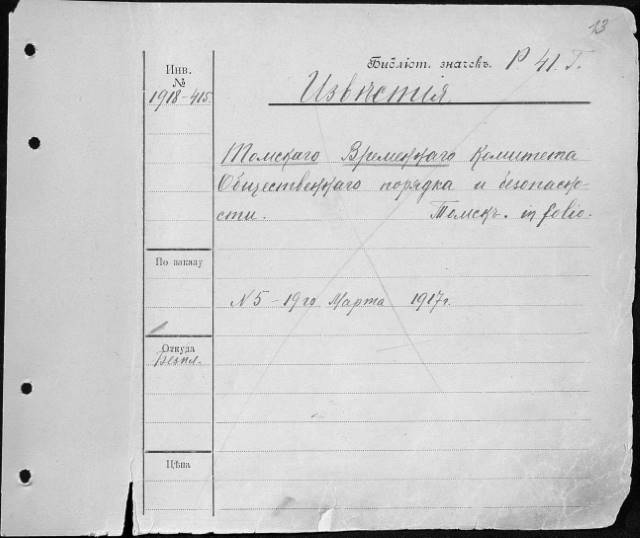 13
Библіот. значекъ. Р 41. Г.
Инв.
№
1918-415
Извѣстія
Томскаго Временнаго Комитета
Общественнаго порядка и безопасно-
сти. Томскъ. in folio.
По заказу
N 5 - 19го Марта 1917г.
Откуда
Безпл.
Цѣна